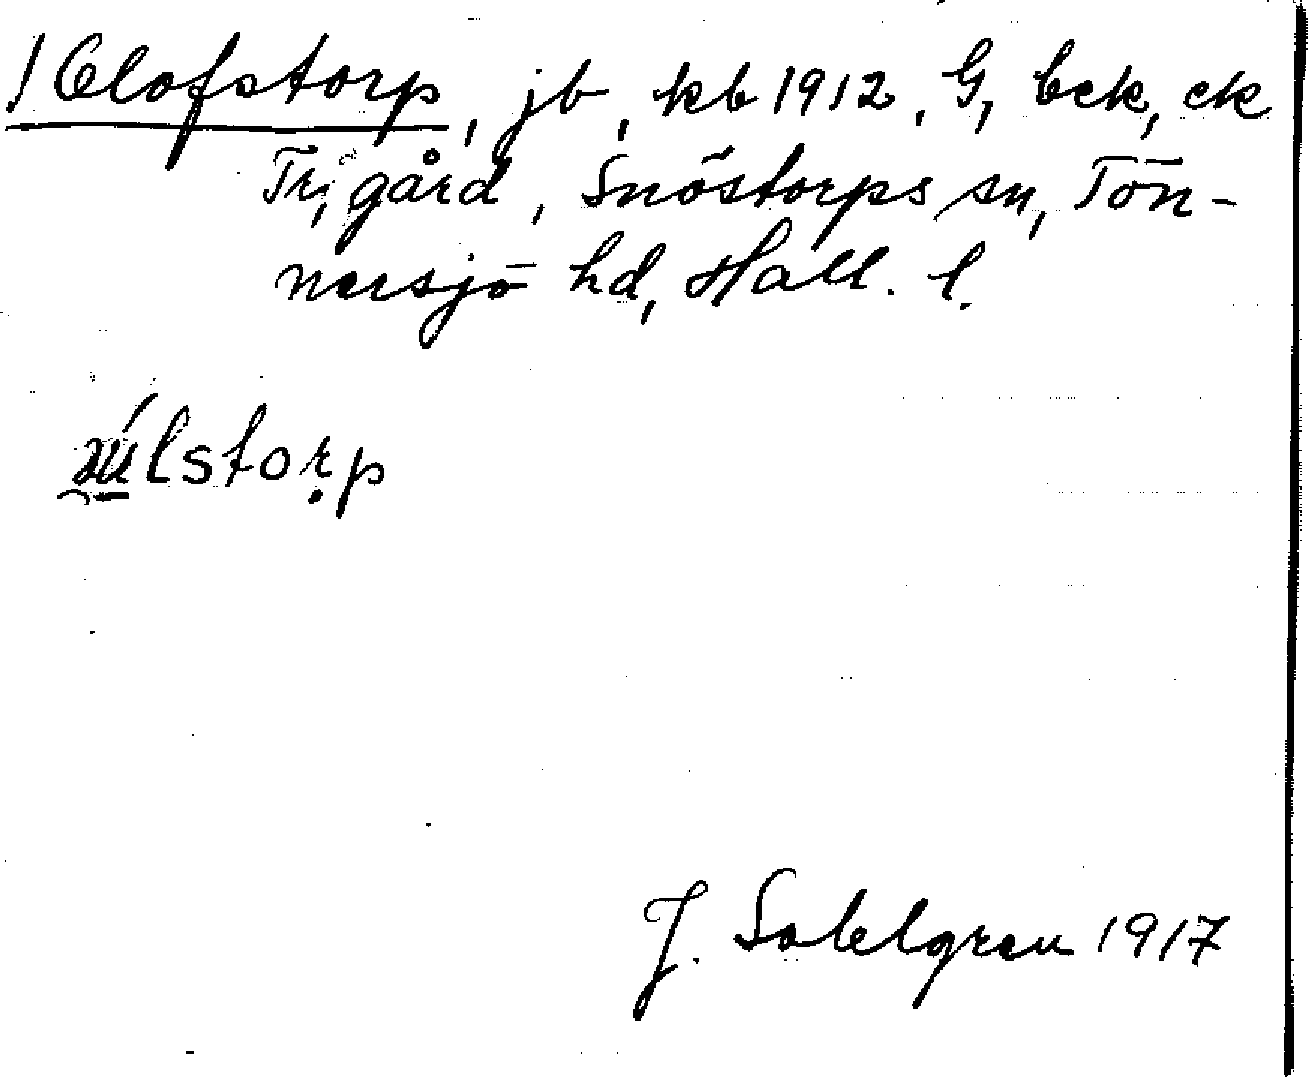 / Olofstorp, jb, kb 1912, G, bek, ek
Tr, gård, Snöstorps sn, Tön-
nersjö hd, Hall. l.
úlstorp
J. Sahlgren 1917